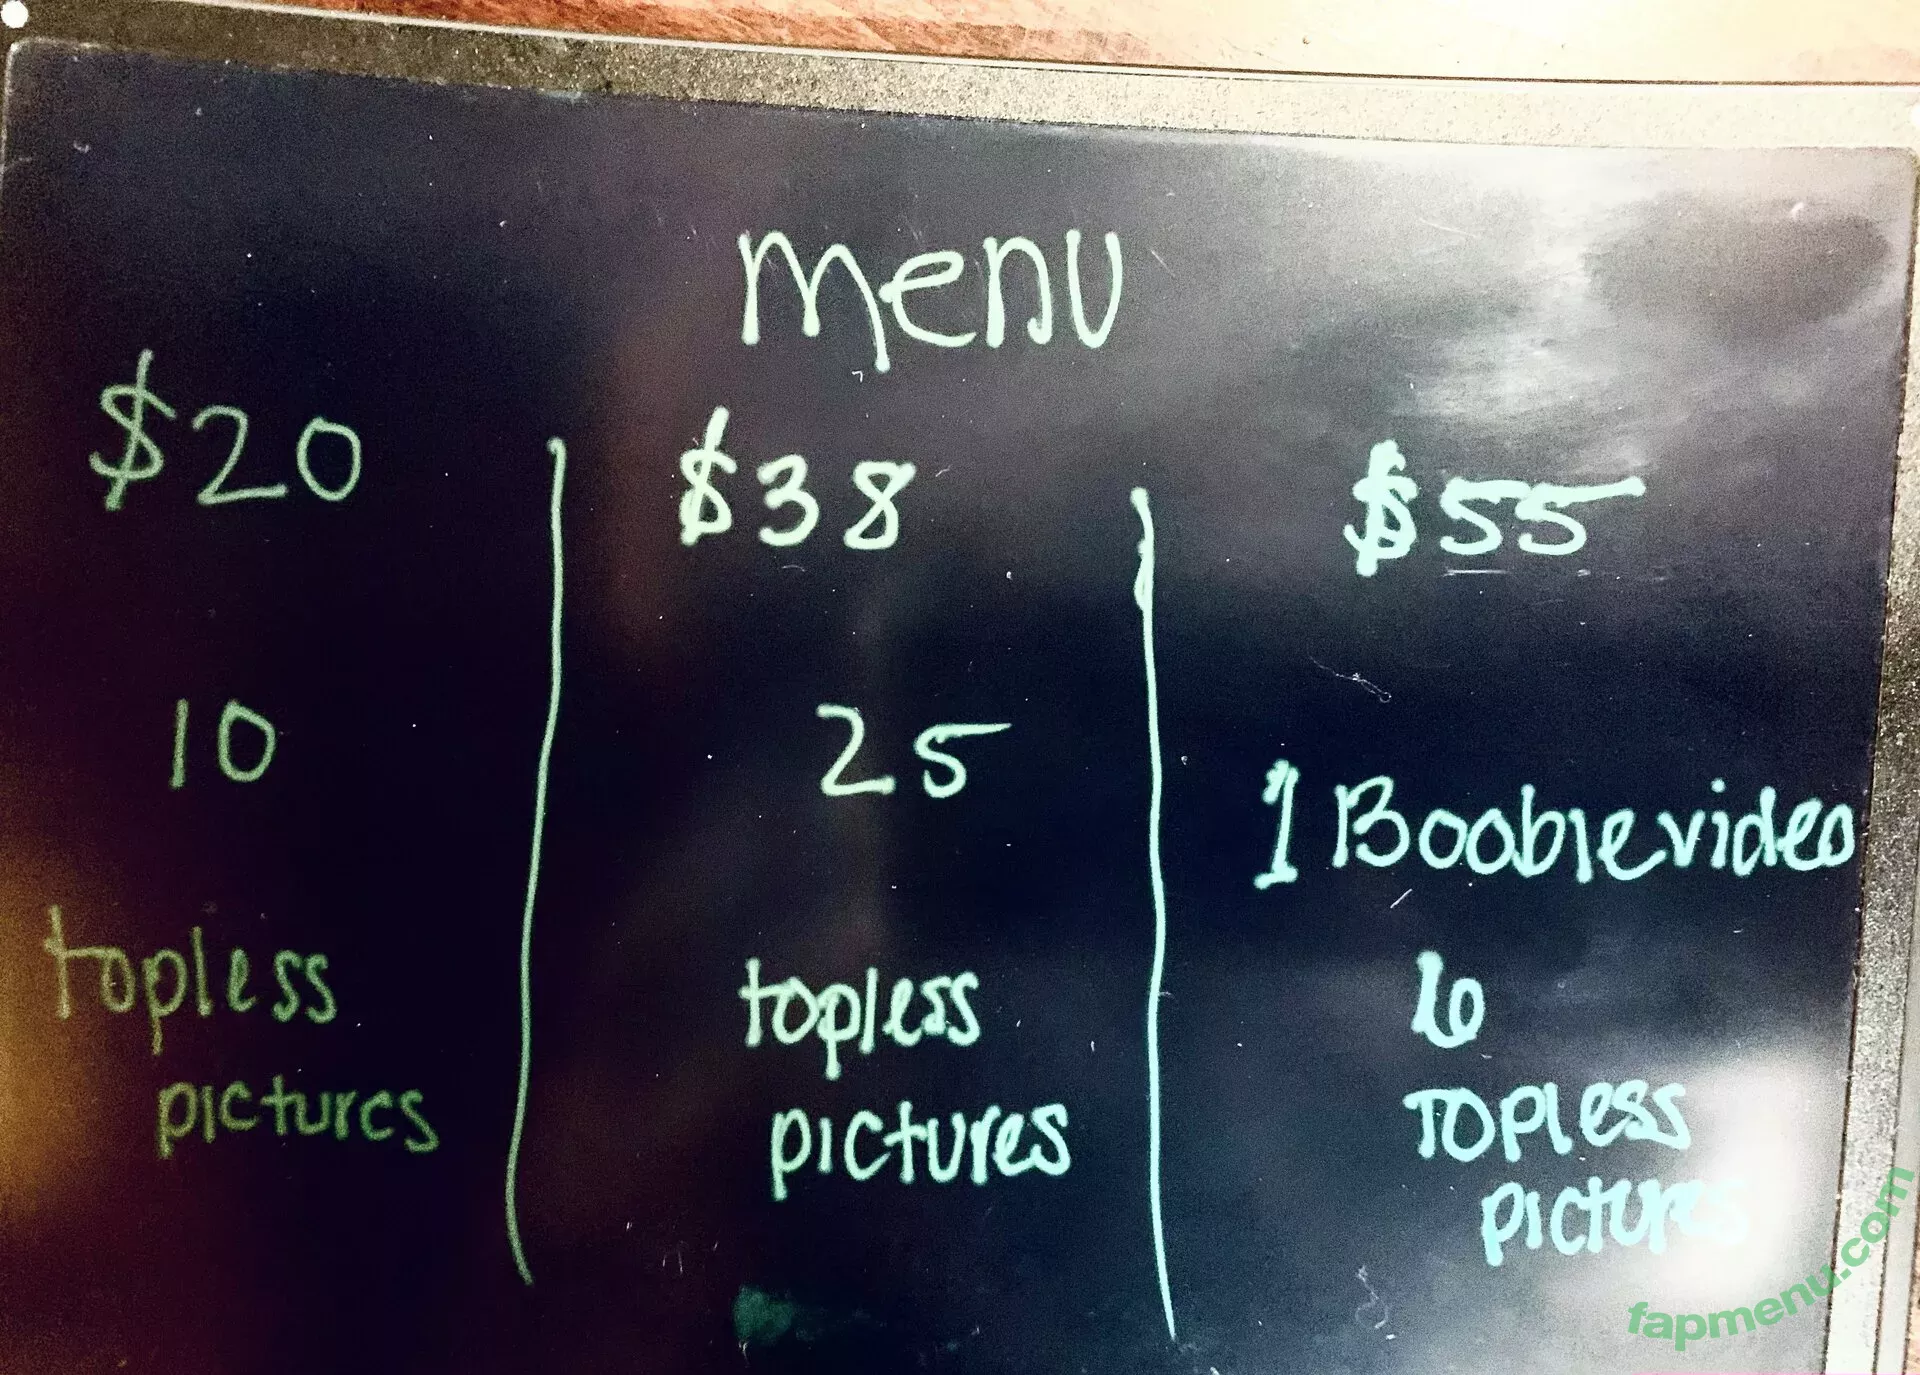 menu
$20
10
topless
pictures
$38
25
topless
pictures
$55
1 Boobie video
6
TOPless
pictures
fapmenu.com